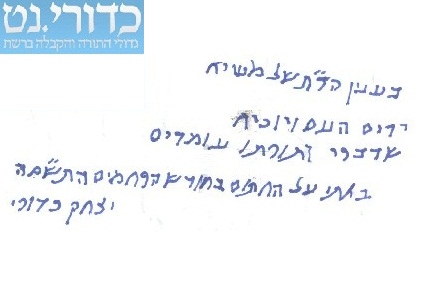 כדורי.נט
גדולי התורה והקבלה ברשת
בענין הר״ת של משיח
ירים העם ויוכיח
שדברו ותורתו עומדים
באתי על החתום בחודש הרחמים התשס״ה
יצחק כדורי